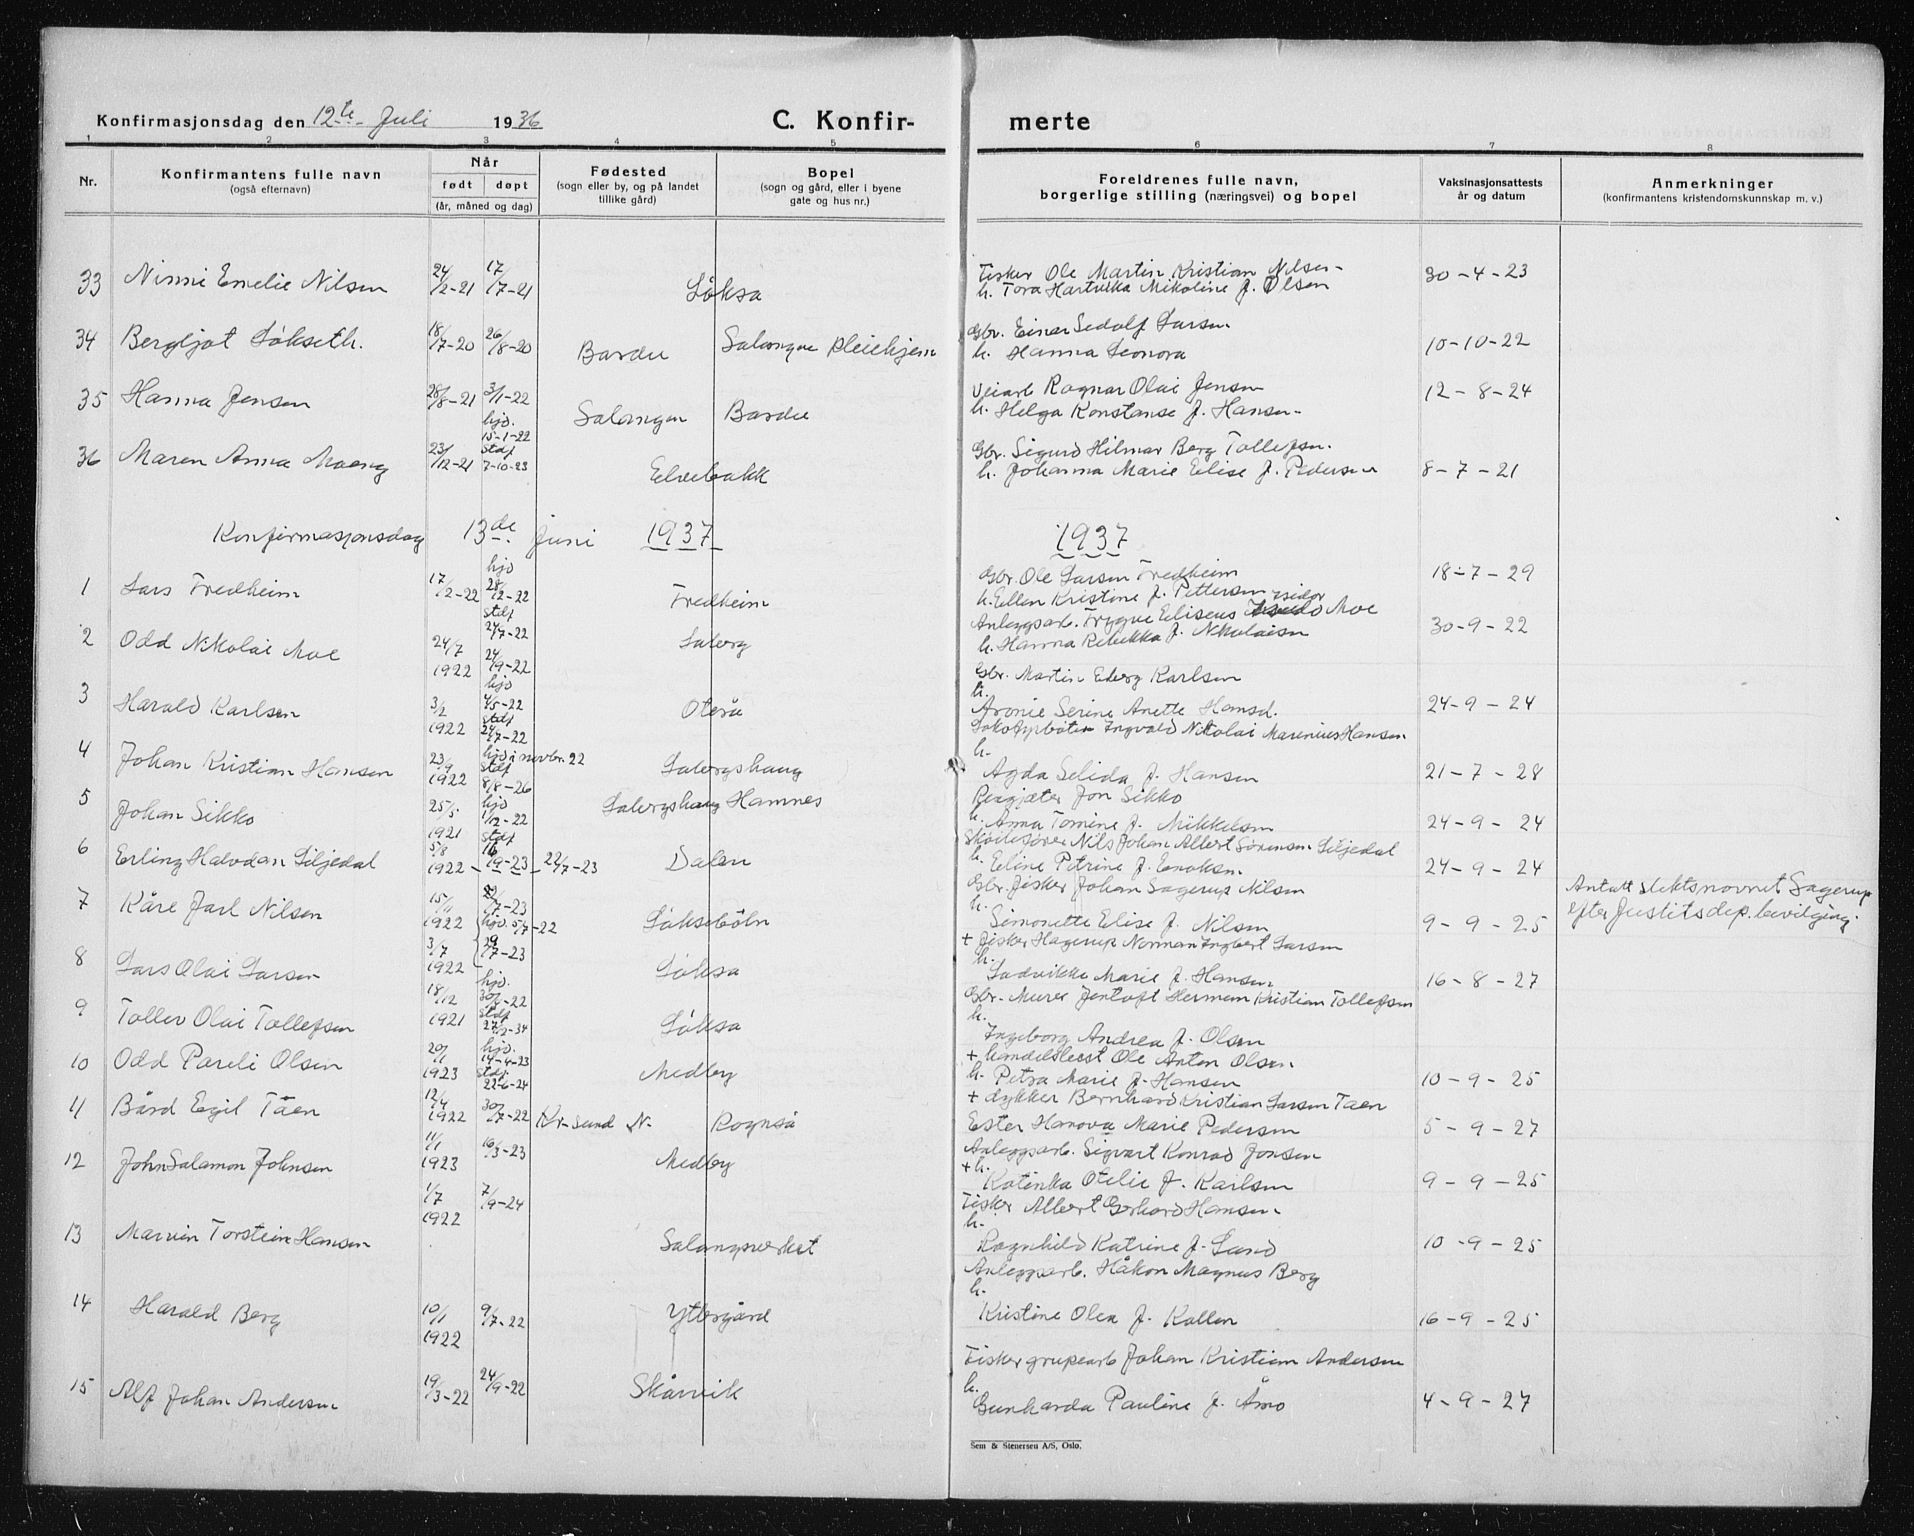 Konfirmasjonsdag den 12te Juli 1936 C. Konfir- merte
1 2 3 4 5 6 7 8
Nr. Konfirmantens fulle navn (også efternavn) Når født døpt (år, måned og dag) Fødested (sogn eller by, og på landet tillike gård) Bopel (sogn og gård, eller i byene gate og hus nr.) Foreldrenes fulle navn, borgerlige stilling (næringsvei) og bopel Vaksinasjonsattests år og datum Anmerkninger (konfirmantens kristendomskunnskap m. v.)
33 Ninni Emelie Nilsen 24/2-21 17/7-21 Løksa Fisker Ole Martin Kristian Nilsen- 30-4-23
h. Tora Hartvikka Mikoline f. Olsen
34 Bergljot Løkseth. 18/7-20 26/8-20 Bardu Salangen pleiehjem Gbr. Einar Sedolf Larsen 10-10-22
h. Hanna Leonora
35 Hanna Jensen 28/8-21 3/1-22 Salangen Bardu Veiarb Ragnar Olai Jensen 12-8-24
h. Helga Konstanse f. Hansen-
36 Maren Anna Moeng 23/12-21 hjd. 15-1-22 stdf 7-10-23 Elvebakk Gbr. Sigurd Hilmar Berg Tollefsen. 8-7-21
h. Johanna Marie Elise f. Pedersen
Konfirmasjonsdag 13de Juni 1937 1937
1 Lars Fredheim 17/2-22 hjd 28/2-22 stdf 24/7-22 Fredheim Gbr. Ole Larsen Fredheim 18-7-29
h. Ellen Kristine f. Pettersen
2 Odd Nikolai Moe 24/7 1922 24/9-22 Laberg Anleggsarb. Trygve Eliseus Isidor Moe 30-9-22
h. Hanna Rebekka f. Nikolaisen
3 Harald Karlsen 3/2 1922 hjd 4/5-22 stdf 24/7-22 Oterå Gbr. Martin Eberg Karlsen 24-9-24
h. Aronie Serine Anette Hansd.
4 Johan Kristian Hansen 23/9 1922 hjd i novbr. 22 stdf 8/8-26 Labergshaug Ingvald Nikolai Marenius Hansen
h. Agda Selida f. Hansen 21-7-28
5 Johan Sikko 25/5 1921 hjd 1/12-22 stdf Labergshaug Hamnes Rengjæter Jon Sikko
h. Anna Tomine f. Mikkelsen 24-9-24
6 Erling Halvdan Liljedal 5/8 1922 22/7-23 Dalen Skøitefører Nils Johan Albert Sørensen Liljedal
h. Eline Petrine f. Enoksen 24-9-24
7 Kåre Jarl Nilsen 15/11 1922 Løksebotn Gbr. fisker Johan Sagerup Nilsen Antatt slektsnavnet Sagerup
h. Simonette Elise f. Nilsen 9-9-25 efter Justitsdep. bevilging.
8 Lars Olai Larsen 3/7 1922 hjd. 5/7-22 29/7-23 Løksa + fisker Hagerup Norman Ingbert Larsen
h. Ludvikke Marie f. Hansen 16-8-27
9 Toller Olai Tollefsen 18/12 1921 hjd. stdf Løksa Gbr. Murer Jentoft Hermann Kristian Tollefsen
h. Ingeborg Andrea f. Olsen
10 Odd Pareli Olsen 20/1 1923 hjd. 14-4-23 stdf 22-6-24 Medby + handelsbest Ole Anton Olsen
h. Petra Marie f. Hansen 10-9-25
11 Bård Egil Tåen 12/4 1922 30/7-22 Kr-sund N. Rognså + dykker Bernhard Kristian Larsen Taen
Ester Hanova Marie Pedersen 5-9-27
12 John Salamon Johnsen 11/1 1923 16/3-23 Medby Anleggsarb. Sigvart Konrad Jonsen
+ h. Katinka Otelie f. Karlsen 9-9-25
13 Marvin Torstein Hansen 1/7 1922 7/9-24 Salangsverket Fisker Albert Gerhard Hansen
h. Ragnhild Katrine f. Lund 10-9-25
14 Harald Berg 10/1 1922 9/7-22 Yttergård Anleggsarb. Håkon Magnus Berg
h. Kristine Olea f. Kollen 16-9-25
15 Alf Johan Andersen 19/3-22 24/9-22 Skårvik Fisker grupearb Johan Kristian Andersen
h. Gunharda Pauline f. Åmo 4-9-27
Sem & Stenersen A/S, Oslo.